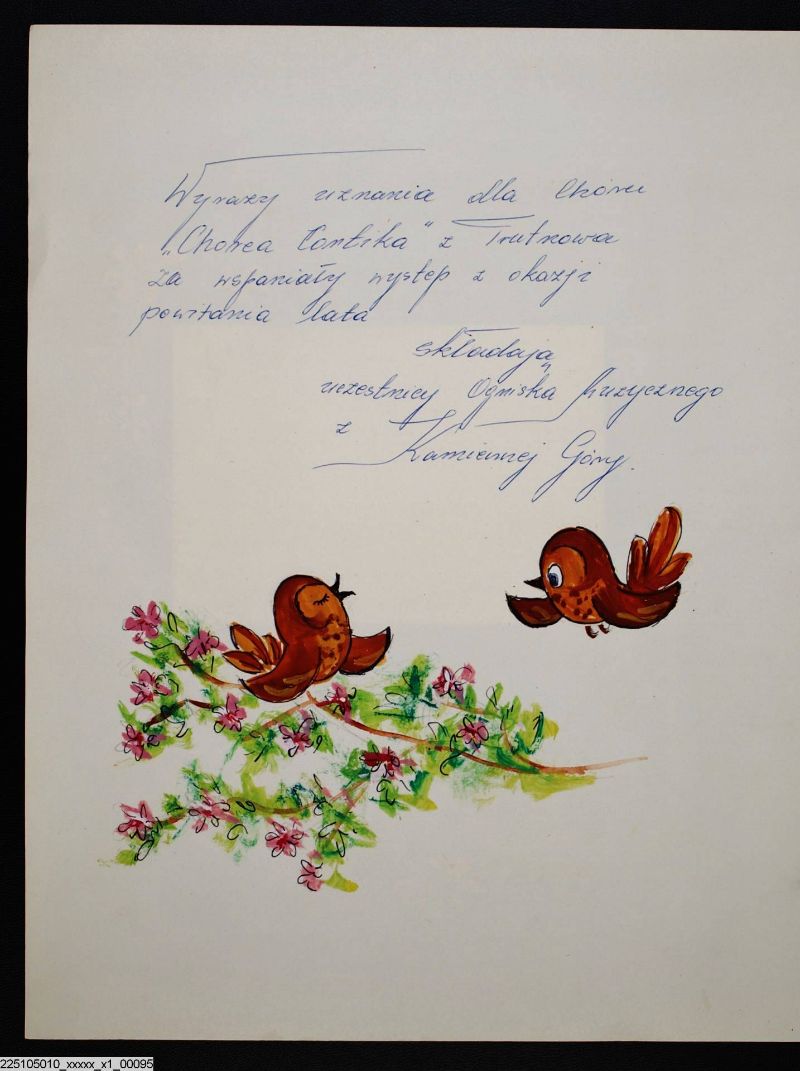 Wyrazy uznania dla Chóru
„Chorea Cantika" z Trutnowa
za wspaniały występ z okazji
powitania lata
składają
uczestnicy Ogniska Muzycznego
z Kamiennej Góry.
225105010_xxxxx_x1_00095